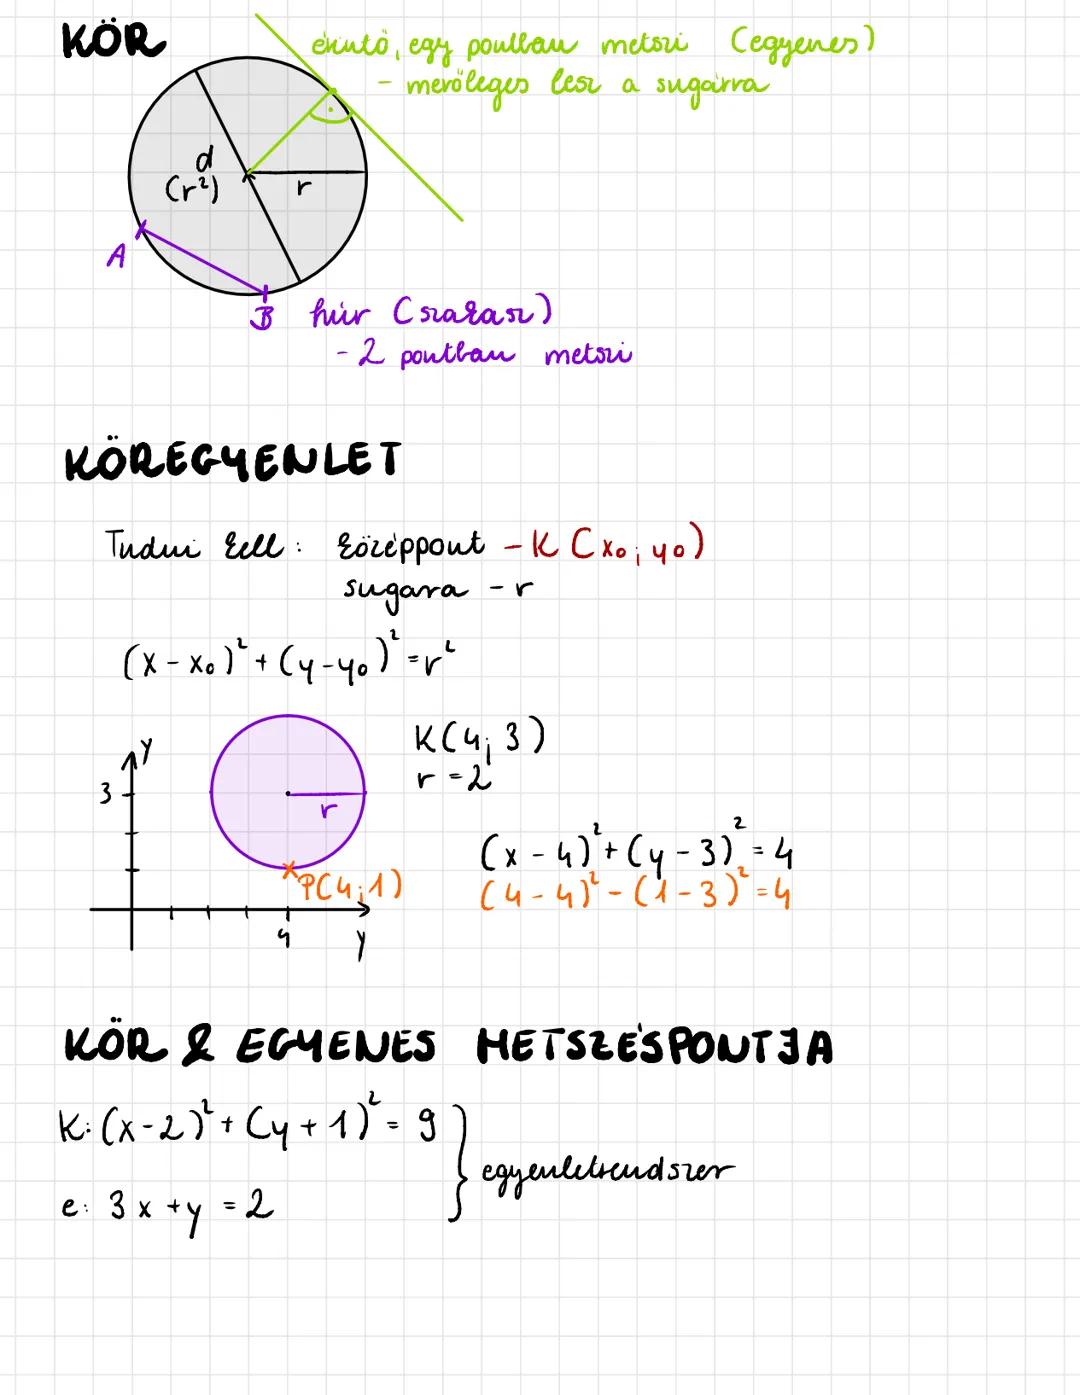 KÖR
érintő, egy pontban metszi (egyenes)
- merőleges lesz a sugárra
d
(r²)
r
A
B
húr (szakasz)
- 2 pontban metszi
KÖREGYENLET
Tudni kell: középpont - K (x₀; y₀)
sugara - r
(x - x₀)² + (y - y₀)² = r²
y
3
r
P(4;1)
4
y
K(4; 3)
r = 2
(x - 4)² + (y - 3)² = 4
(4 - 4)² - (1 - 3)² = 4
KÖR & EGYENES METSZÉSPONTJA
K: (x - 2)² + (y + 1)² = 9
e: 3x + y = 2
egyenletrendszer